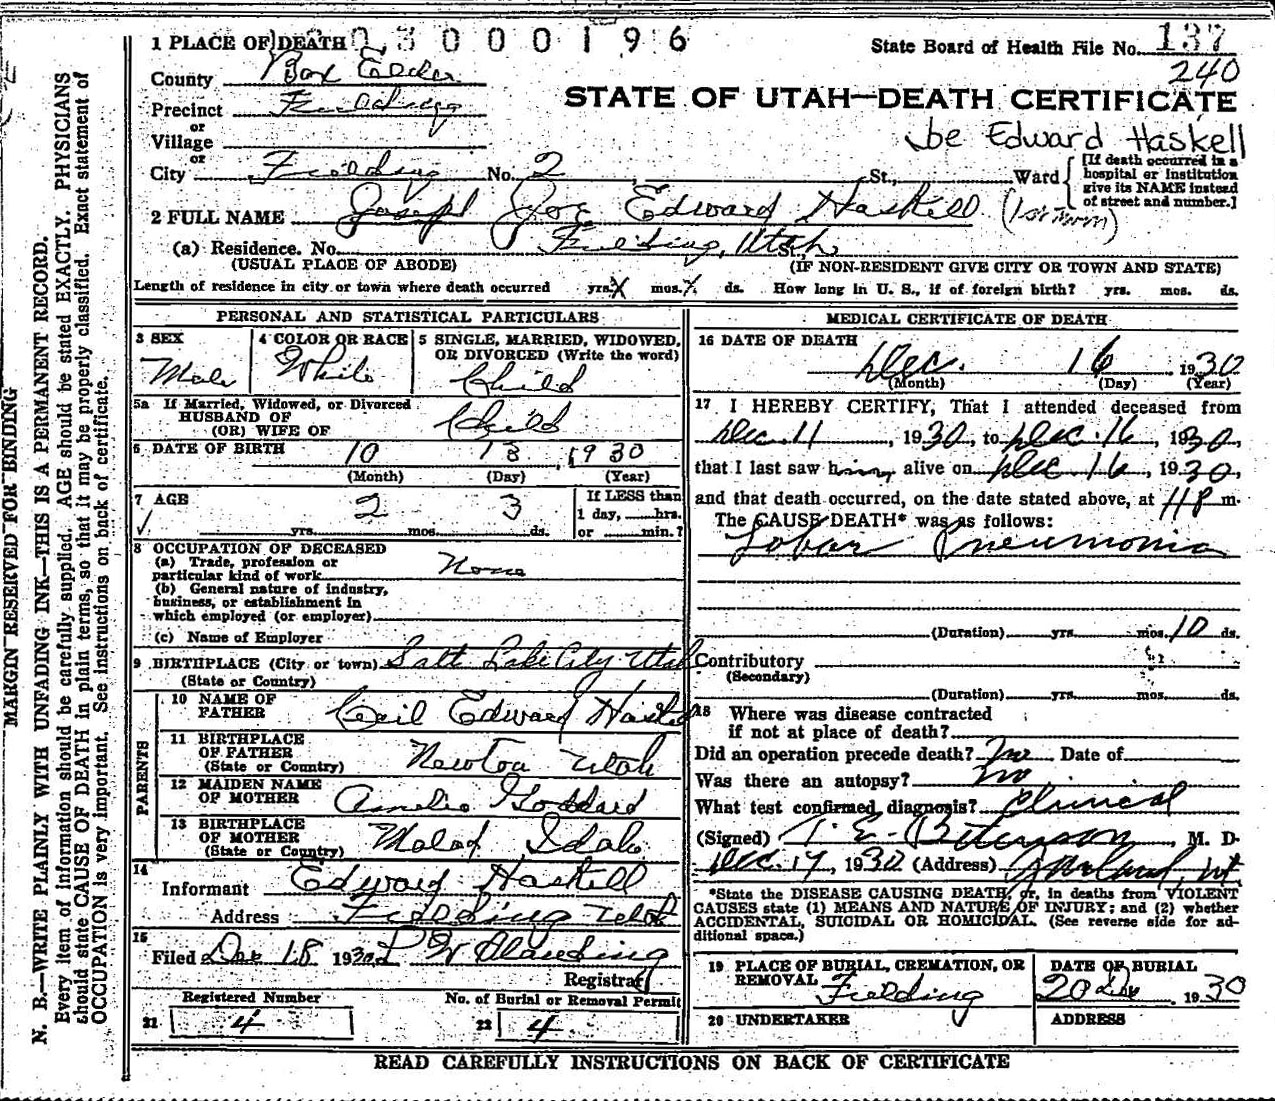 1 PLACE OF DEATH 3 0 0 0 1 9 6
State Board of Health File No. 137
240
County Box Elder
STATE OF UTAH—DEATH CERTIFICATE
Precinct Fielding
or
Village
Joe Edward Haskell
or
City Fielding No. 2 St., Ward
[If death occurred in a
hospital or institution
give its NAME instead
of street and number.]
2 FULL NAME Joseph Joe Edward Haskell (1st Twin)
(a) Residence. No. Fielding, Utah St.,
(USUAL PLACE OF ABODE) (IF NON-RESIDENT GIVE CITY OR TOWN AND STATE)
Length of residence in city or town where death occurred yrs. X mos. ds. How long in U. S., if of foreign birth? yrs. mos. ds.
PERSONAL AND STATISTICAL PARTICULARS
3 SEX Male
4 COLOR OR RACE White
5 SINGLE, MARRIED, WIDOWED,
OR DIVORCED (Write the word)
Child
5a If Married, Widowed, or Divorced
HUSBAND OF
(OR) WIFE OF Child
6 DATE OF BIRTH 10 13 1930
(Month) (Day) (Year)
7 AGE
yrs. 2 mos. 3 ds.
If LESS than
1 day, hrs.
or min.?
8 OCCUPATION OF DECEASED
(a) Trade, profession or
particular kind of work None
(b) General nature of industry,
business, or establishment in
which employed (or employer)
(c) Name of Employer
9 BIRTHPLACE (City or town) Salt Lake City Utah
(State or Country)
PARENTS
10 NAME OF
FATHER Cecil Edward Haskell
11 BIRTHPLACE
OF FATHER
(State or Country) Newton Utah
12 MAIDEN NAME
OF MOTHER Amelia Goddard
13 BIRTHPLACE
OF MOTHER
(State or Country) Malad Idaho
14
Informant Edward Haskell
Address Fielding Utah
15
Filed Dec 18 1930
Registrar
Registered Number
21 4
No. of Burial or Removal Permit
22 4
MEDICAL CERTIFICATE OF DEATH
16 DATE OF DEATH
Dec. 16 1930
(Month) (Day) (Year)
17 I HEREBY CERTIFY, That I attended deceased from
Dec. 11, 1930, to Dec. 16, 1930,
that I last saw him alive on Dec 16, 1930,
and that death occurred, on the date stated above, at 11 P m.
The CAUSE DEATH* was as follows:
Lobar Pneumonia
(Duration) yrs. mos. 10 ds.
Contributory
(Secondary)
(Duration) yrs. mos. ds.
18 Where was disease contracted
if not at place of death?
Did an operation precede death? No Date of
Was there an autopsy? no
What test confirmed diagnosis? Clinical
(Signed) T. E. Betenson, M. D.
Dec. 17, 1930 (Address) Garland, Ut.
*State the DISEASE CAUSING DEATH, or, in deaths from VIOLENT
CAUSES state (1) MEANS AND NATURE OF INJURY; and (2) whether
ACCIDENTAL, SUICIDAL OR HOMICIDAL. (See reverse side for ad-
ditional space.)
19 PLACE OF BURIAL, CREMATION, OR
REMOVAL Fielding
DATE OF BURIAL
20 Dec. 1930
20 UNDERTAKER ADDRESS
READ CAREFULLY INSTRUCTIONS ON BACK OF CERTIFICATE
MARGIN RESERVED FOR BINDING
N. B.—WRITE PLAINLY WITH UNFADING INK—THIS IS A PERMANENT RECORD.
Every item of information should be carefully supplied. AGE should be stated EXACTLY. PHYSICIANS
should state CAUSE OF DEATH in plain terms, so that it may be properly classified. Exact statement of
OCCUPATION is very important. See instructions on back of certificate.